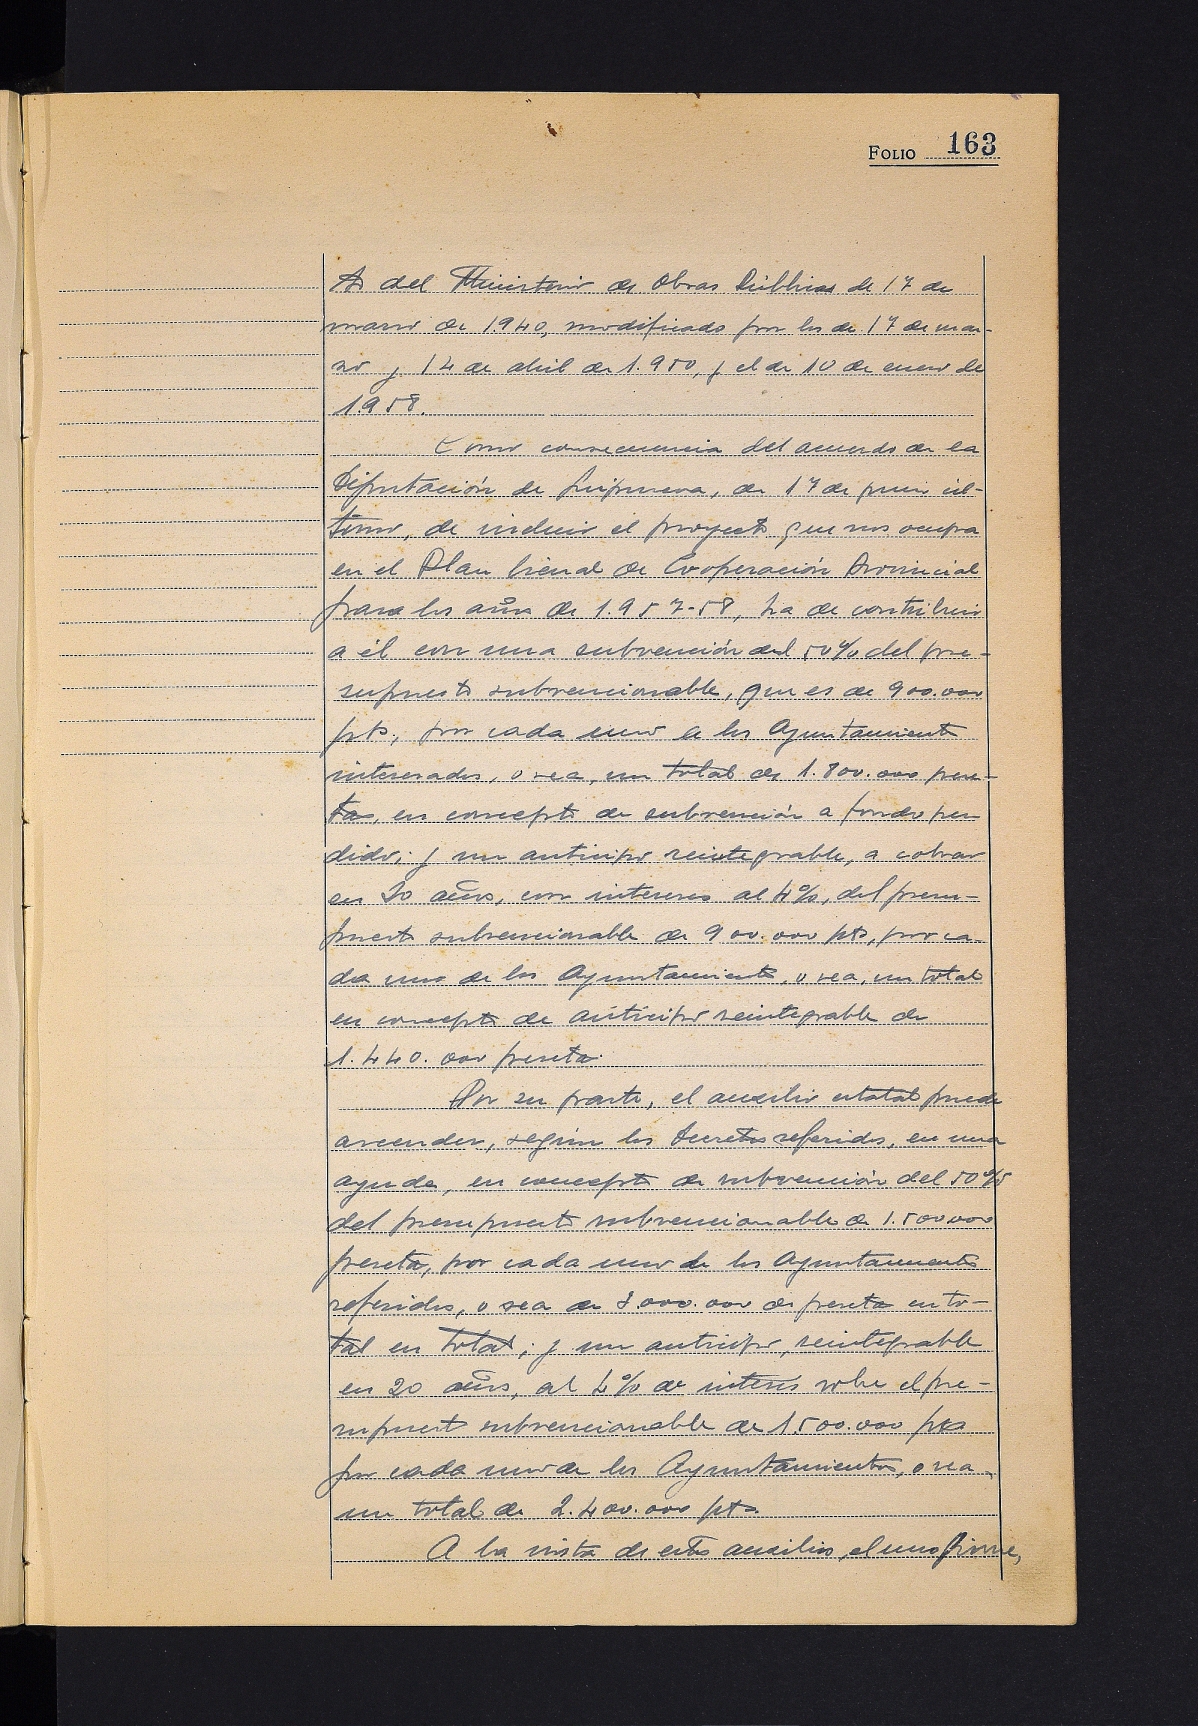 FOLIO 163
tos del Ministerio de Obras Públicas de 17 de
marzo de 1940, modificado por los de 17 de mar-
zo y 14 de abril de 1.950, y el de 10 de enero de
1.958.
Como consecuencia del acuerdo de la
Diputación de Guipuzcoa, de 17 de junio úl-
timo, de incluir el proyecto que nos ocupa
en el Plan bienal de Cooperación Provincial
para los años de 1.957-58, ha de contribuir
a él con una subvención del 50% del pre-
supuesto subvencionable, que es de 900.000
pts, por cada uno de los Ayuntamientos
interesados, o sea, un total de 1.800.000 pese-
tas, en concepto de subvención a fondo per
dido; y un anticipo reintegrable, a cobrar
en 20 años, con intereses al 4%, del presu-
puesto subvencionable de 900.000 pts, por ca-
da uno de los Ayuntamientos, o sea, un total
en concepto de anticipo reintegrable de
1.440.000 pesetas.
Por su parte, el auxilio estatal puede
ascender, según los Decretos referidos, en una
ayuda, en concepto de subvención del 50%
del presupuesto subvencionable de 1.500.000
pesetas, por cada uno de los Ayuntamientos
referidos, o sea de 3.000.000 de pesetas en to-
tal en total; y un anticipo, reintegrable
en 20 años, al 4% de interés sobre el pre-
supuesto subvencionable de 1.500.000 pts
por cada uno de los Ayuntamientos, o sea,
un total de 2.400.000 pts.
A la vista de estos auxilios, el uno firme,